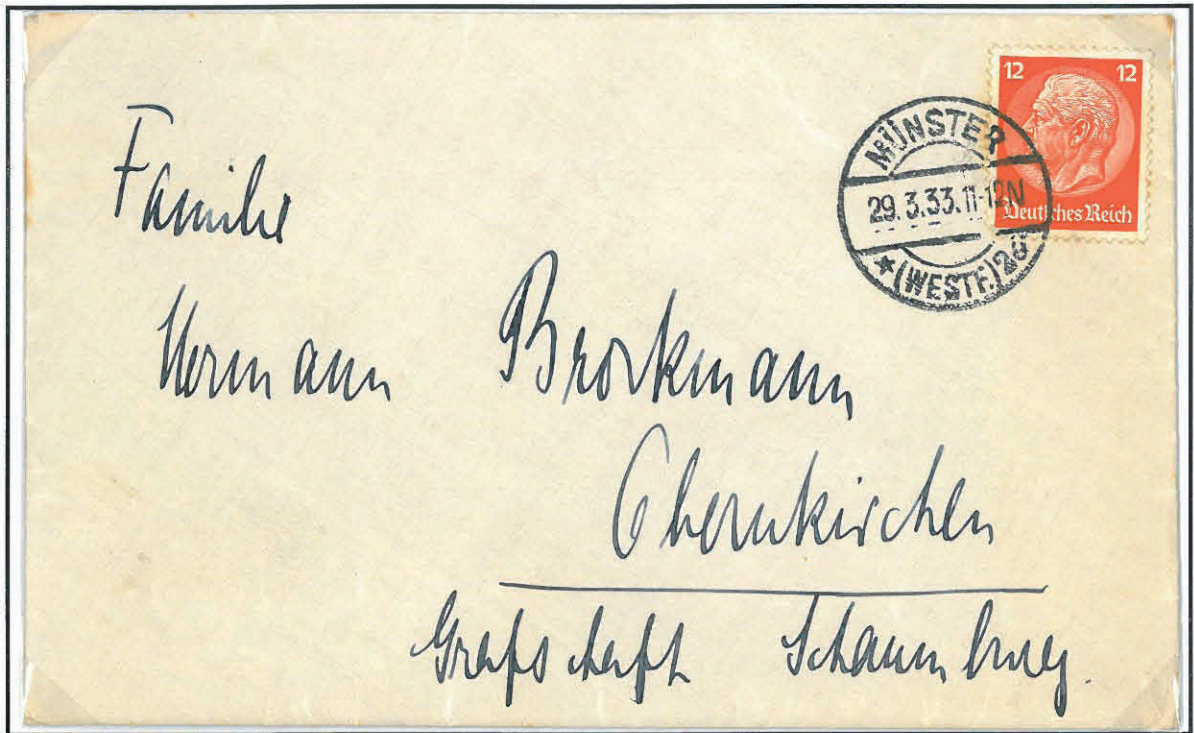 12 12
Deutsches Reich
MÜNSTER
29.3.33.11-12N
* (WESTF.) 20
Familie
Hermann Brockmann
Obernkirchen
Grafschaft Schaumburg.